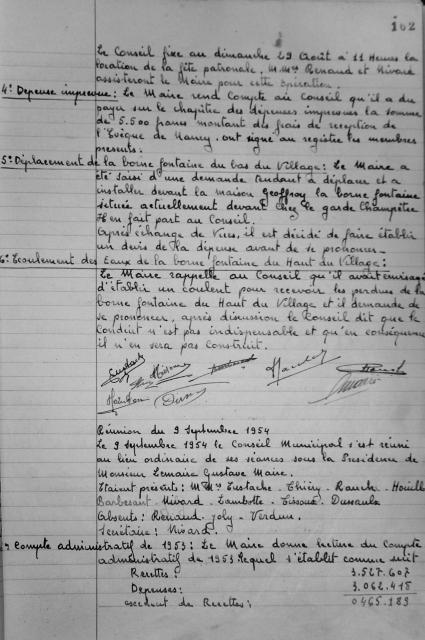 102
Le Conseil fixe au dimanche 29 Août à 11 Heures la
location de la fête patronale. M.Mrs Renaud et Nivard
assisteront le Maire pour cette opération.
4° Dépense imprévue: Le Maire rend Compte au Conseil qu'il a du
payer sur le chapitre des dépenses imprévues la somme
de 5.500 francs montant des frais de réception de
l'Evêque de Nancy. ont signé au registre les membres
présents.
5° Déplacement de la borne fontaine du bas du Village: Le Maire a
été saisi d'une demande tendant à déplacer et à
installer devant la maison Geoffroy la borne fontaine
située actuellement devant chez le garde Champêtre
Il en fait part au Conseil.
Après échange de Vues, il est décidé de faire établir
un devis de la dépense avant de se prononcer.
6° Ecoulement des Eaux de la borne fontaine du Haut du Village:
Le Maire rappelle au Conseil qu'il avait envisagé
d'établir un coulent pour recevoir les perdues de la
borne fontaine du Haut du Village et il demande de
se prononcer, après discussion le Conseil dit que le
Conduit n'est pas indispensable et qu'en conséquence
il n'en sera pas construit.
Eustache
Réunion du 9 Septembre 1954
Le 9 Septembre 1954 le Conseil Municipal s'est réuni
au lieu ordinaire de ses séances sous la Présidence de
Monsieur Lemaire Gustave Maire.
Etaient présents: M.Mrs Eustache - Thiéry - Rauch - Houillé
Barbesant - Nivard - Lambotte - Cissous - Dussaulx
Absents: Renaud - Joly - Verdun.
Secrétaire: Nivard.
Compte administratif de 1953: Le Maire donne lecture du Compte
administratif de 1953 lequel s'établit comme suit
Recettes: 3.527.607
Dépenses: 3.062.418
excédent de Recettes: 0465.189